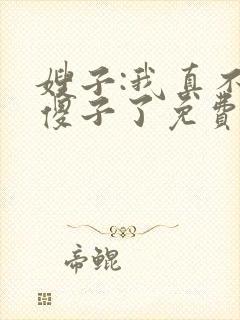 嫂子:我真不
傻子了免费
帝鲲